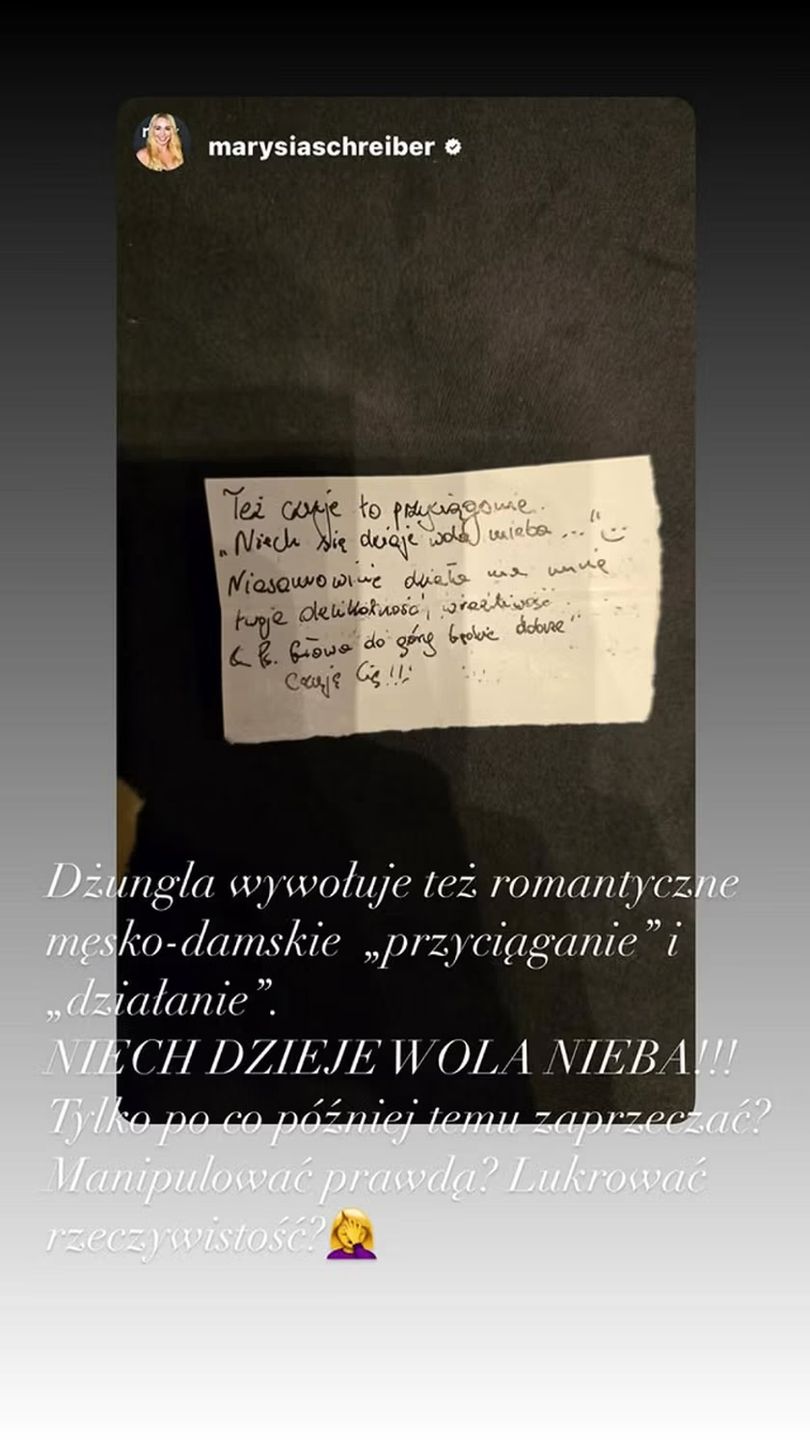 marysiaschreiber
Też czuje to przyciąganie.
„Niech się dzieje wola nieba ..." :)
Niesamowicie działa na mnie
twoja delikatność, wrażliwość
Głowa do góry będzie dobrze"
Czuję Cię!!!
Dżungla wywołuje też romantyczne
męsko-damskie „przyciąganie” i
„działanie”.
NIECH DZIEJE WOLA NIEBA!!!
Tylko po co później temu zaprzeczać?
Manipulować prawdą? Lukrować
rzeczywistość?🤦‍♀️